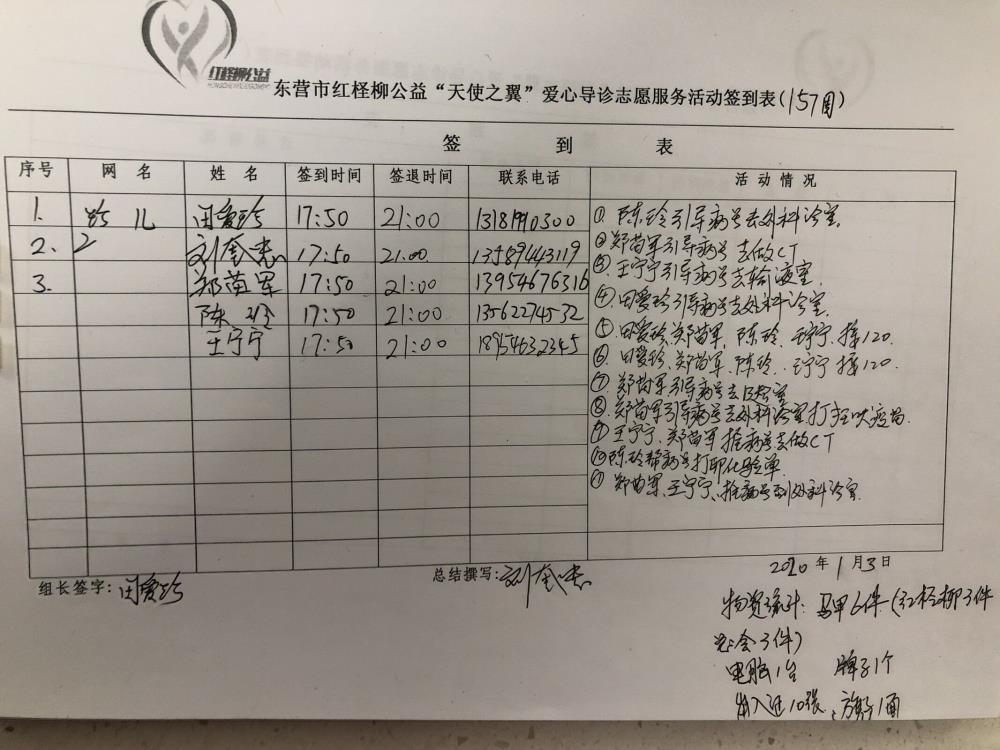 红柽柳公益
东营市红柽柳公益“天使之翼”爱心导诊志愿服务活动签到表(157周)
签 到 表
序号 网 名 姓 名 签到时间 签退时间 联系电话 活 动 情 况
1. 儿 田爱珍 17:50 21:00
2. 刘奎忠 17:50 21:00 13589443119
3. 郑苗军 17:50 21:00 13954676316
陈玲 17:50 21:00 13562274532
王宁宁 17:50 21:00 18954632345
①. 陈玲引导病号去外科诊室.
②郑苗军引导病号去做CT
③. 王宁宁引导病号去输液室.
④. 田爱珍引导病号去外科诊室.
⑤. 田爱珍、郑苗军、陈玲、王宁宁接120.
⑥. 田爱珍、郑苗军、陈玲、王宁宁接120.
⑦郑苗军引导病号去
⑧. 郑苗军引导病号去外科诊室打狂犬疫苗.
⑨王宁宁、郑苗军推病号去做CT
⑩陈玲帮病号打印化验单
⑪ 郑苗军、王宁宁、推病号到外科诊室.
组长签字: 田爱珍 总结撰写: 刘奎忠 2020 年 1 月 3 日
物资统计: 马甲6件(红柽柳3件
会3件)
电脑1台 牌子1个
出入证10张、旗1面